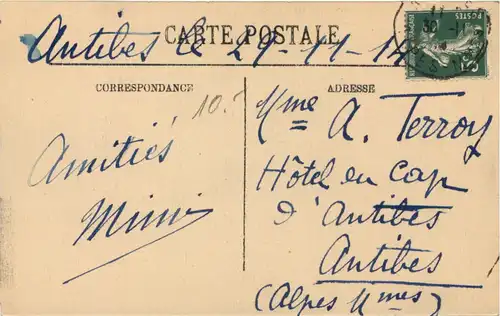 CARTE POSTALE
Antibes le 29-11-14
CORRESPONDANCE
10.-
ADRESSE
Amitiés
Mimi
Mme A. Terroy
Hôtel du Cap
d'Antibes
Antibes
(Alpes Mmes)
POSTES